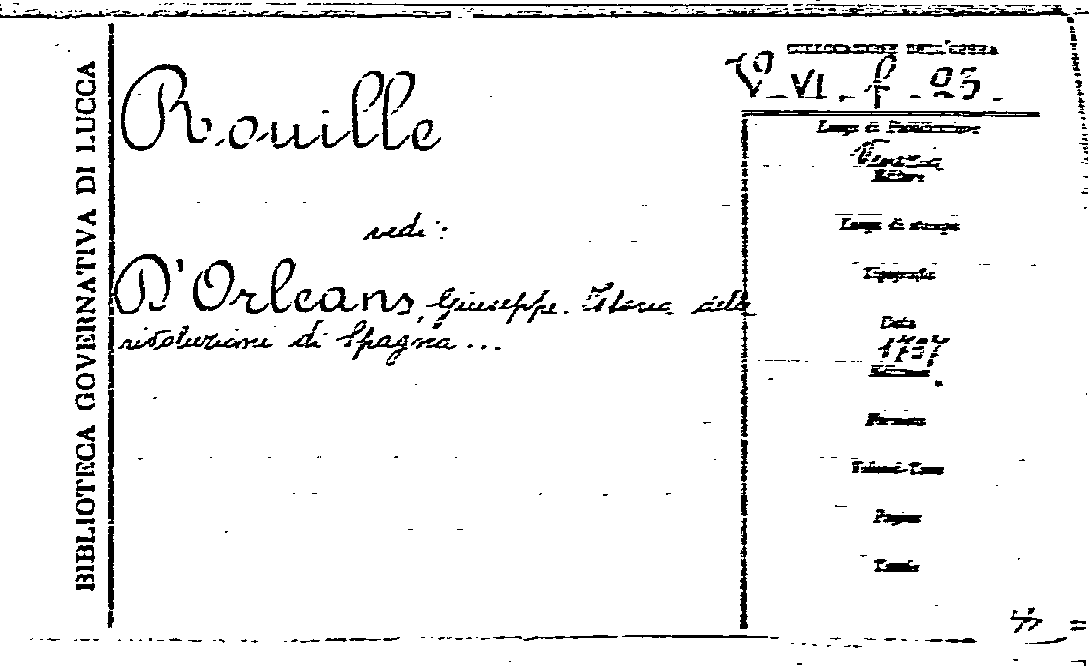 BIBLIOTECA GOVERNATIVA DI LUCCA
Rouille
vedi:
D'Orleans, Giuseppe. Istoria delle
rivoluzioni di Spagna...
COLLOCAZIONE DELL'OPERA
VI. f. 23
Luogo di Pubblicazione
Venezia
Editore
Luogo di stampa
Tipografia
Data
1737
Edizione
Formato
Volumi-Tomi
Pagine
Tavole